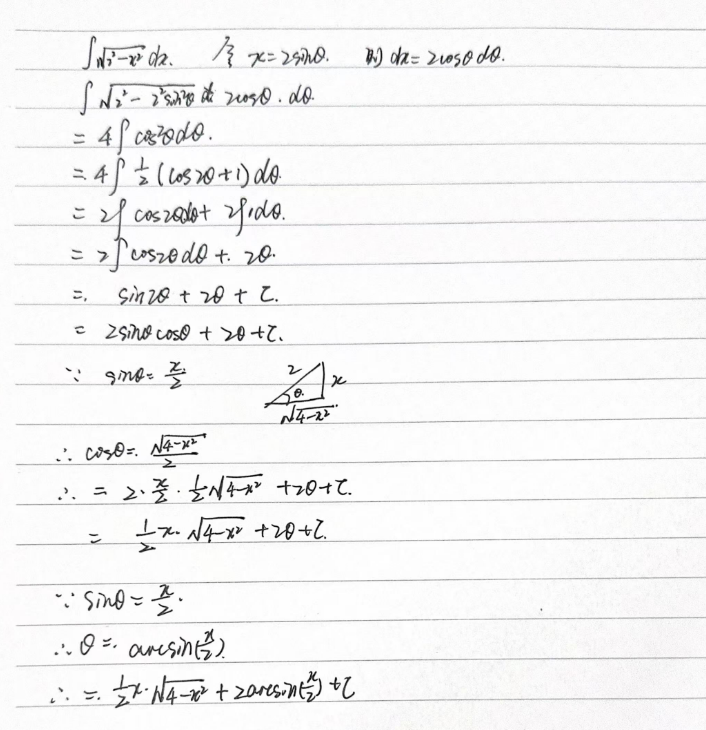 ∫√(2²-x²) dx. 令 x=2sinθ. 则 dx=2cosθdθ.
∫√(2²-2²sin²θ) 2cosθ·dθ.
= 4∫cos²θdθ.
= 4∫½(cos2θ+1)dθ.
= 2∫cos2θdθ+2∫1dθ.
= 2∫cos2θdθ+.2θ.
=. sin2θ+2θ+C.
= 2sinθcosθ+2θ+C.
∵ sinθ=x/2
2 x
θ.
√(4-x²)
∴ cosθ=.√(4-x²)/2
∴ = 2·x/2·½√(4-x²)+2θ+C.
= ½x·√(4-x²)+2θ+C.
∵ sinθ=x/2.
∴ θ=.arcsin(x/2).
∴ =.½x·√(4-x²)+2arcsin(x/2)+C